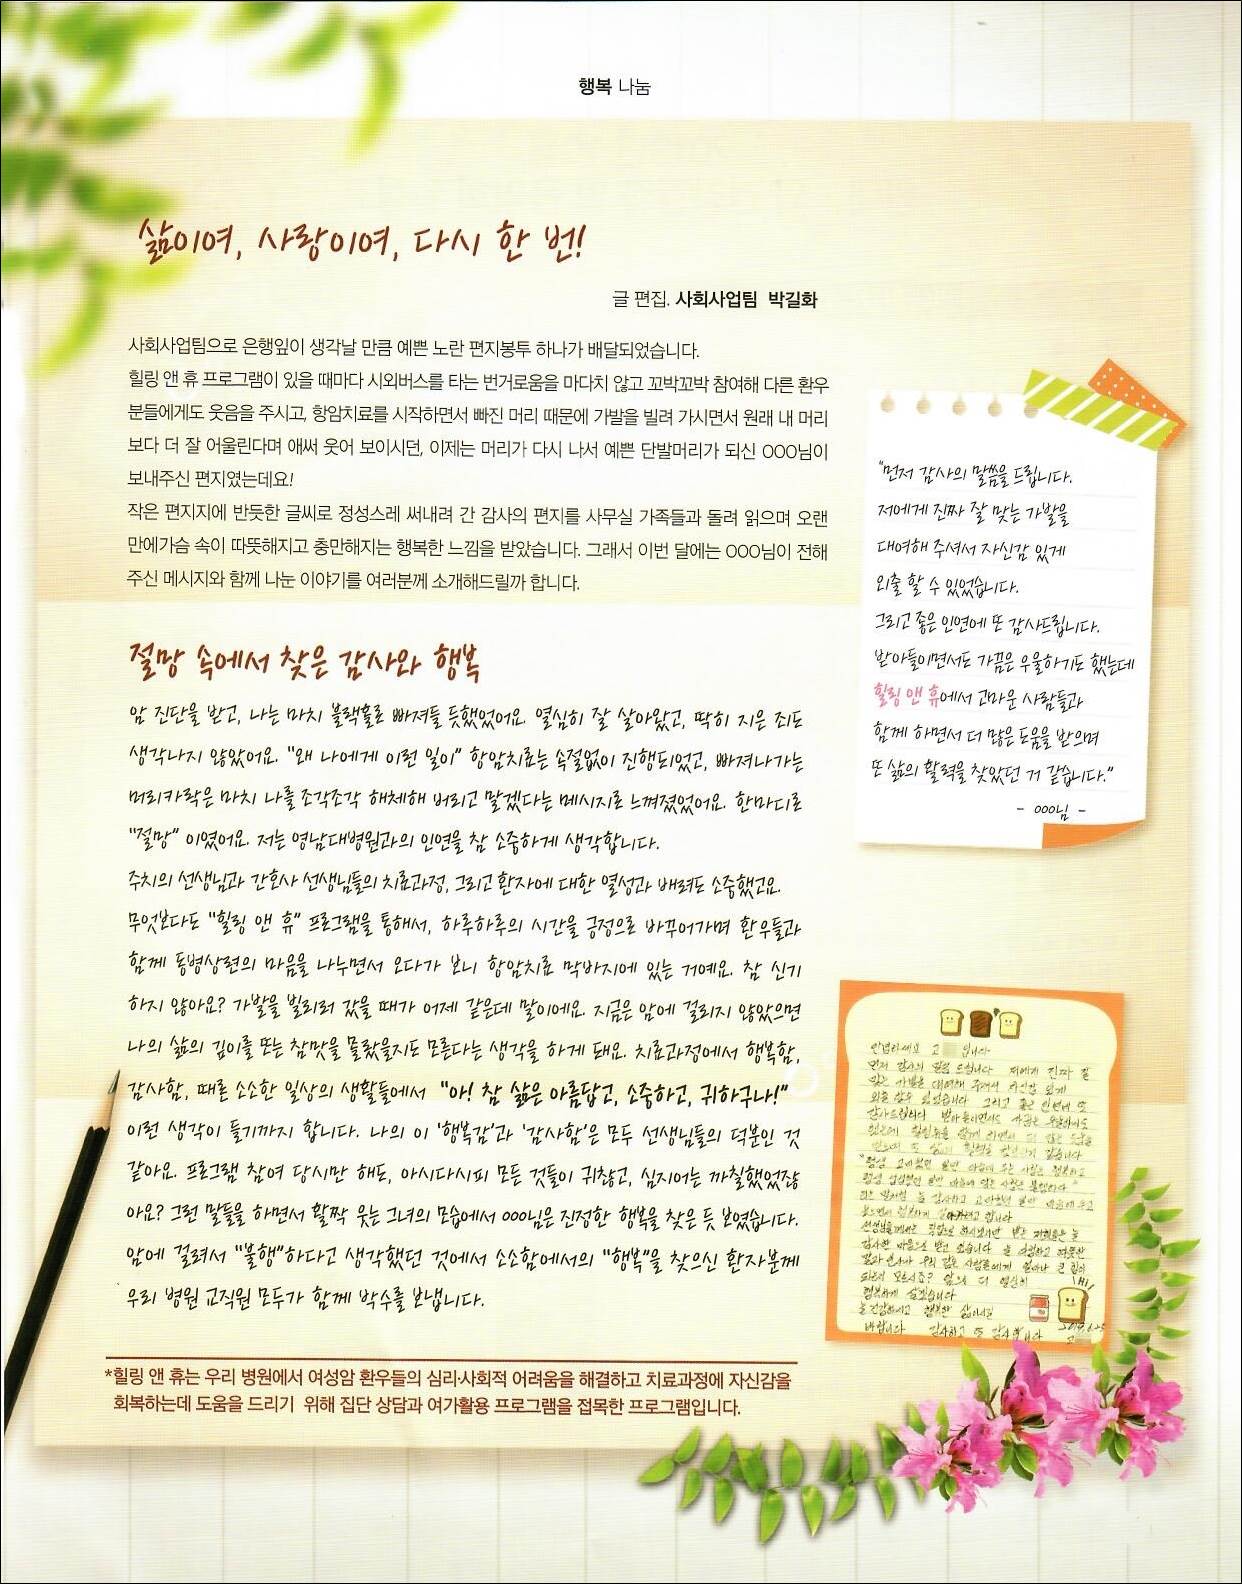 행복 나눔
삶이여, 사랑이여, 다시 한 번!
글 편집. 사회사업팀 박길화
사회사업팀으로 은행잎이 생각날 만큼 예쁜 노란 편지봉투 하나가 배달되었습니다.
힐링 앤 휴 프로그램이 있을 때마다 시외버스를 타는 번거로움을 마다치 않고 꼬박꼬박 참여해 다른 환우
분들에게도 웃음을 주시고, 항암치료를 시작하면서 빠진 머리 때문에 가발을 빌려 가시면서 원래 내 머리
보다 더 잘 어울린다며 애써 웃어 보이시던, 이제는 머리가 다시 나서 예쁜 단발머리가 되신 OOO님이
보내주신 편지였는데요!
작은 편지지에 반듯한 글씨로 정성스레 써내려 간 감사의 편지를 사무실 가족들과 돌려 읽으며 오랜
만에가슴 속이 따뜻해지고 충만해지는 행복한 느낌을 받았습니다. 그래서 이번 달에는 OOO님이 전해
주신 메시지와 함께 나눈 이야기를 여러분께 소개해드릴까 합니다.
절망 속에서 찾은 감사와 행복
암 진단을 받고, 나는 마치 블랙홀로 빠져들 듯했었어요. 열심히 잘 살아왔고, 딱히 지은 죄도
생각나지 않았어요. "왜 나에게 이런 일이" 항암치료는 속절없이 진행되었고, 빠져나가는
머리카락은 마치 나를 조각조각 해체해 버리고 말겠다는 메시지로 느껴졌었어요. 한마디로
"절망" 이였어요. 저는 영남대병원과의 인연을 참 소중하게 생각합니다.
주치의 선생님과 간호사 선생님들의 치료과정, 그리고 환자에 대한 열성과 배려도 소중했고요.
무엇보다도 "힐링 앤 휴" 프로그램을 통해서, 하루하루의 시간을 긍정으로 바꾸어가며 환우들과
함께 동병상련의 마음을 나누면서 오다가 보니 항암치료 막바지에 있는 거예요. 참 신기
하지 않아요? 가발을 빌리러 갔을 때가 어제 같은데 말이에요. 지금은 암에 걸리지 않았으면
나의 삶의 깊이를 또는 참맛을 몰랐을지도 모른다는 생각을 하게 돼요. 치료과정에서 행복함,
감사함, 때론 소소한 일상의 생활들에서 "아! 참 삶은 아름답고, 소중하고, 귀하구나!"
이런 생각이 들기까지 합니다. 나의 이 '행복감'과 '감사함'은 모두 선생님들의 덕분인 것
같아요. 프로그램 참여 당시만 해도, 아시다시피 모든 것들이 귀찮고, 심지어는 까칠했었잖
아요? 그런 말들을 하면서 활짝 웃는 그녀의 모습에서 OOO님은 진정한 행복을 찾은 듯 보였습니다.
암에 걸려서 "불행"하다고 생각했던 것에서 소소함에서의 "행복"을 찾으신 환자분께
우리 병원 교직원 모두가 함께 박수를 보냅니다.
*힐링 앤 휴는 우리 병원에서 여성암 환우들의 심리·사회적 어려움을 해결하고 치료과정에 자신감을
회복하는데 도움을 드리기 위해 집단 상담과 여가활용 프로그램을 접목한 프로그램입니다.
"먼저 감사의 말씀을 드립니다.
저에게 진짜 잘 맞는 가발을
대여해 주셔서 자신감 있게
외출 할 수 있었습니다.
그리고 좋은 인연에 또 감사드립니다.
받아들이면서도 가끔은 우울하기도 했는데
힐링 앤 휴에서 고마운 사람들과
함께 하면서 더 많은 도움을 받으며
또 삶의 활력을 찾았던 거 같습니다."
- OOO님 -
안녕하세요 고 입니다
먼저 감사의 말씀 드립니다 저에게 진짜 잘
맞는 가발을 대여해 주셔서 자신감 있게
외출 할수 있었습니다 그리고 좋은 인연에 또
감사드립니다 받아들이면서도 가끔은 우울하기도
늘 건강하시고 행복한 삶이시길
바랍니다 감사하고 또 감사합니다
HI